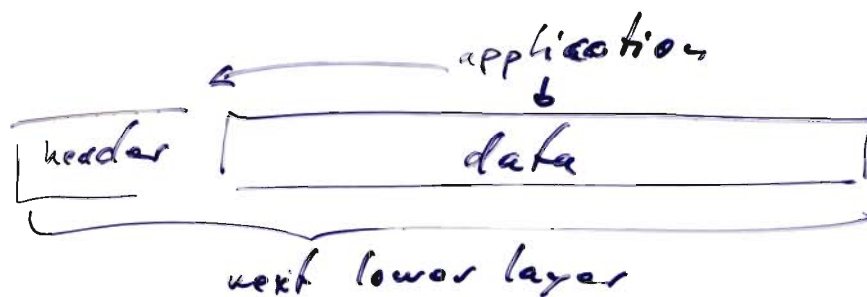 application
header data
next lower layer